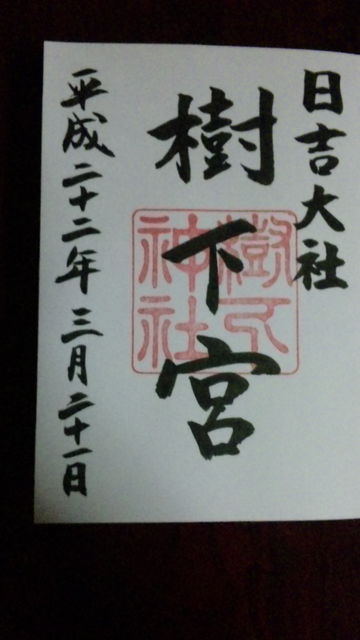 日吉大社
樹下宮
樹下
神社
平成二十二年三月二十一日